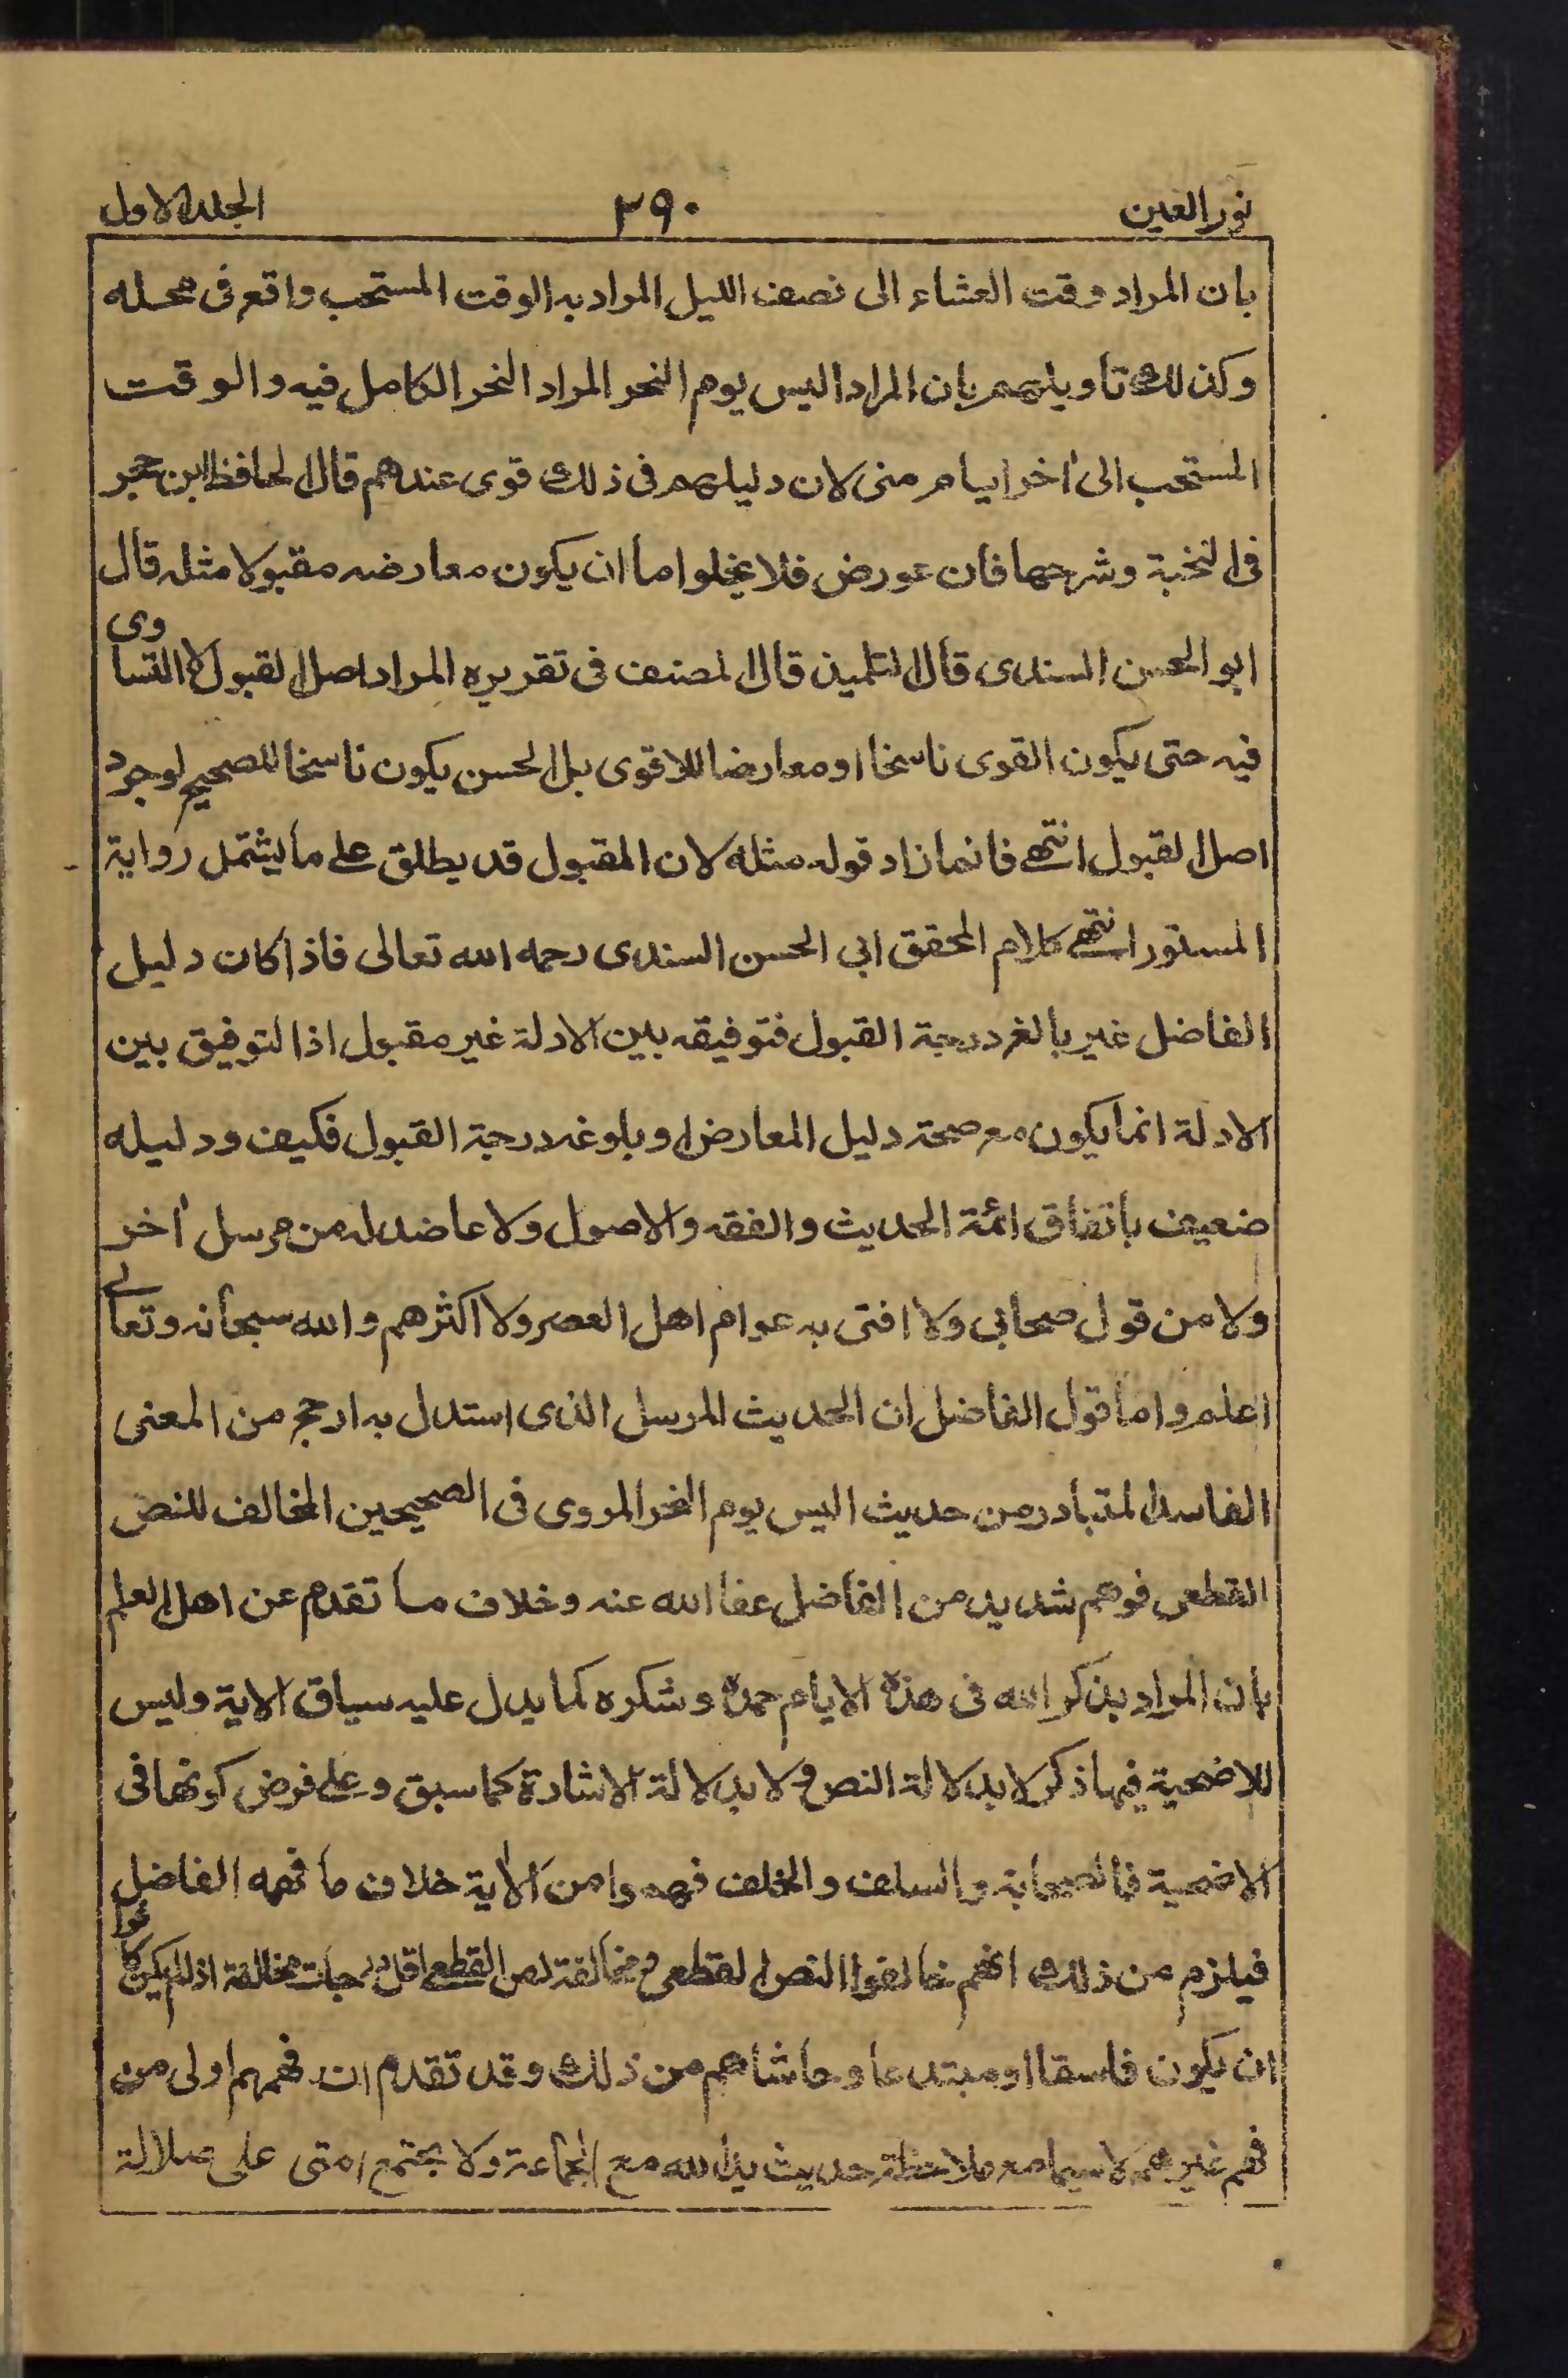 نور العين ٣٩٠ الجلد الاول
بان المراد وقت العشاء الى نصف الليل المراد به الوقت المستحب واقع فى محله
وكذلك تأويلهم بان المراد اليس يوم النحر المراد النحر الكامل فيه والوقت
المستحب الى اٰخر ايام منى لان دليلهم فى ذلك قوى عندهم قال الحافظ ابن حجر
فى النخبة وشرحها فان عورض فلا يخلوا ما ان يكون معارضه مقبولا مثله قال
ابو الحسن السندى قال التلميذ قال المصنف فى تقريره المراد اصل القبول لا التساوى
فيه حتى يكون القوى ناسخا او معارضا للاقوى بل الحسن يكون ناسخا للصحيح لوجود
اصل القبول انتهى فانما زاد قوله مثله لان المقبول قد يطلق على ما يشتمل رواية
المستور انتهى كلام المحقق ابى الحسن السندى رحمه الله تعالى فاذا كان دليل
الفاضل غير بالغ درجة القبول فتوفيقه بين الادلة غير مقبول اذ التوفيق بين
الادلة انما يكون مع صحة دليل المعارض او بلوغه درجة القبول فكيف ودليله
ضعيف باتفاق ائمة الحديث والفقه والاصول ولا عاضد له من مرسل اٰخر
ولا من قول صحابى ولا افتى به عوام اهل العصر ولا اكثرهم والله سبحانه وتعالى
اعلم واما قول الفاضل ان الحديث المرسل الذى استدل به ارجح من المعنى
الفاسد المتبادر من حديث اليس يوم النحر المروى فى الصحيحين المخالف للنص
القطعى فوهم شديد من الفاضل عفا الله عنه وخلاف ما تقدم عن اهل العلم
بان المراد بذكر الله فى هذه الايام حمده وشكره كما يدل عليه سياق الاية وليس
للاضحية فيها ذكر لا بدلالة النص ولا بدلالة الاشارة كما سبق وعلى فرض كونها فى
الاضحية فالصحابة والسلف والخلف فهموا من الاٰية خلاف ما فهمه الفاضل
فيلزم من ذلك انهم خالفوا النص القطعى ومخالفة نص القطعى اقل درجات مخالفة اذا لم يكن
ان يكون فاسقا او مبتدعا وحاشاهم من ذلك وقد تقدم ان فهمهم اولى من
فهم غيرهم لا سيما مع ملاحظة حديث يد الله مع الجماعة ولا يجتمع امتى على ضلالة